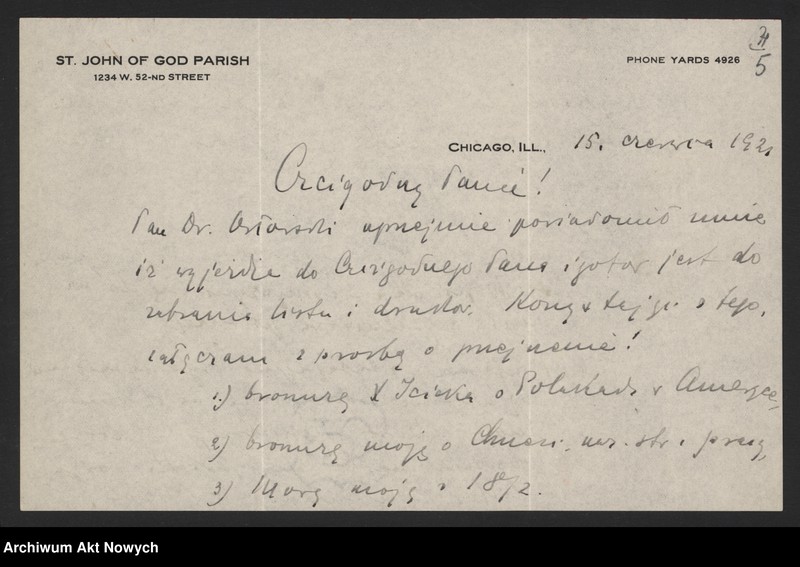 ST. JOHN OF GOD PARISH
1234 W. 52-ND STREET
PHONE YARDS 4926
5
CHICAGO, ILL., 15. czerwca 1921
Czcigodny Panie!
Pan Dr. Orłowski uprzejmie powiadomił mnie
iż wyjeżdża do Czcigodnego Pana i gotów jest do
zabrania listu i druków. Korzystając z tego,
załączam z prośbą o przyjęcie!
1.) broszurę X Icieka o Polakach w Ameryce,
2) broszurę moją o
3) Mowę moją z